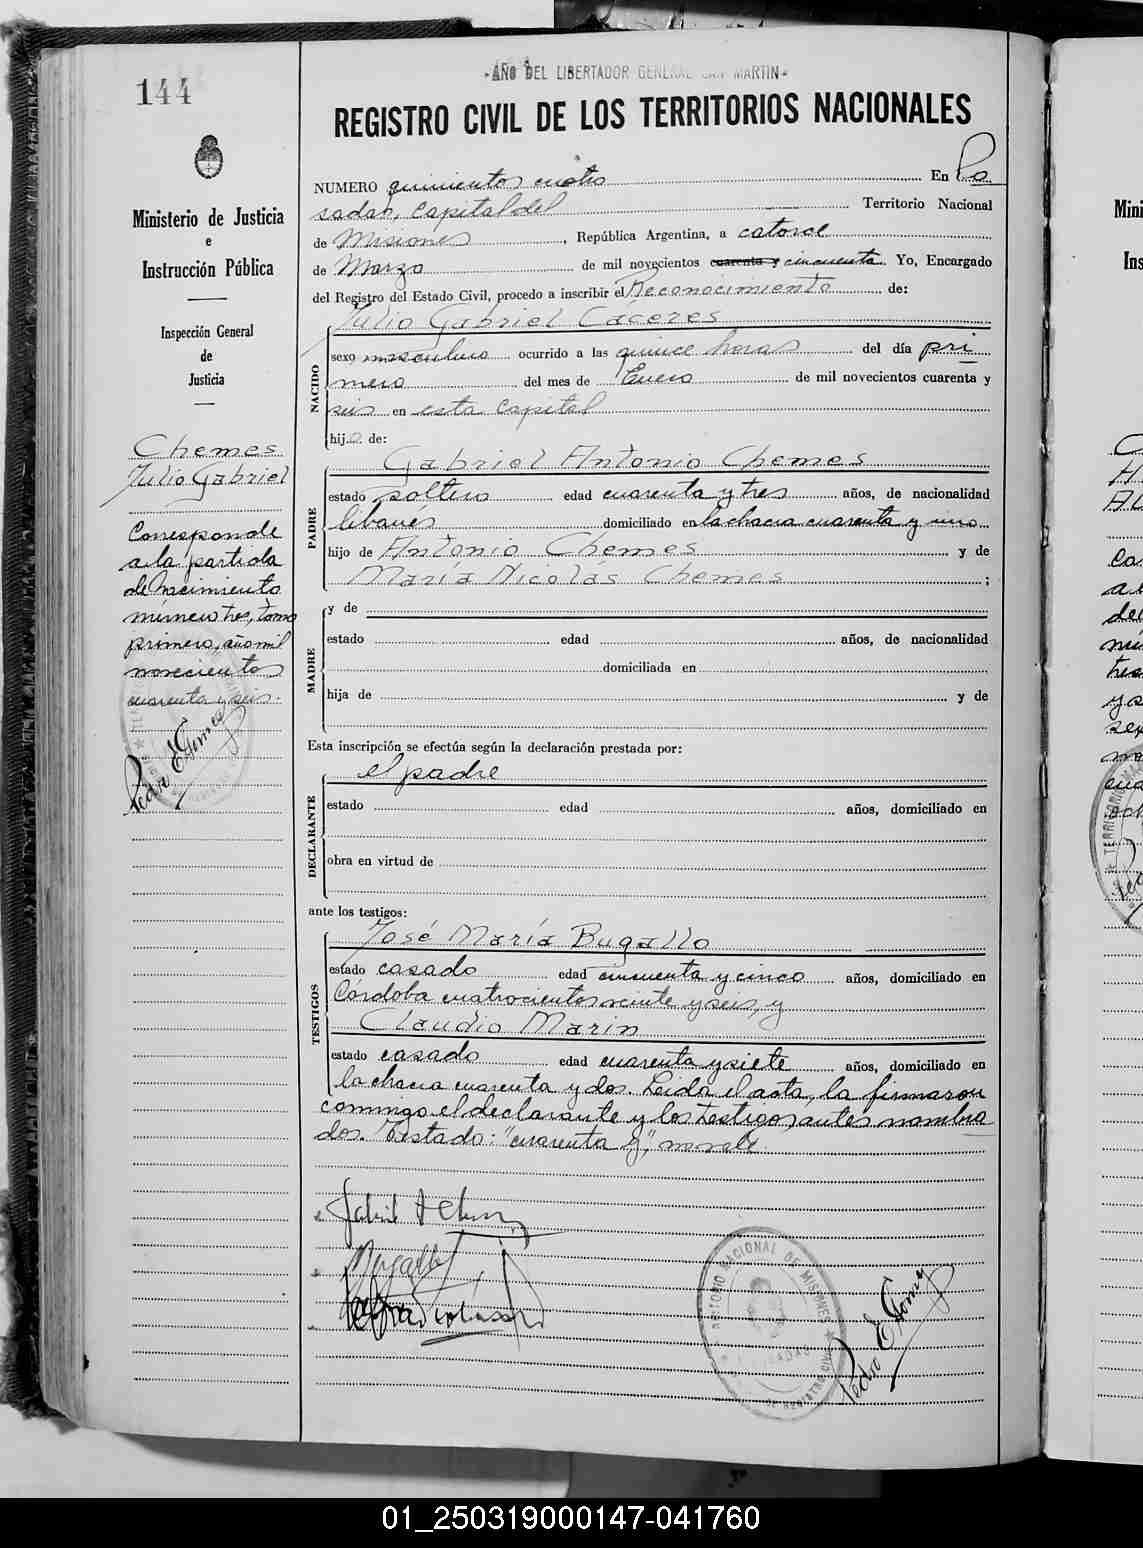 144
-AÑO DEL LIBERTADOR GENERAL SAN MARTIN-
REGISTRO CIVIL DE LOS TERRITORIOS NACIONALES
Ministerio de Justicia
e
Instrucción Pública
Inspección General
de
Justicia
Chemes
Julio Gabriel
Corresponde
a la partida
de Nacimiento
número tres, tomo
primero, año mil
novecientos
cuarenta y seis.
Pedro E Gomez
NUMERO quinientos cuatro En Po
sadas, capital del Territorio Nacional
de Misiones, República Argentina, a catorce
de Marzo de mil novecientos cuarenta y cincuenta Yo, Encargado
del Registro del Estado Civil, procedo a inscribir el Reconocimiento de:
Julio Gabriel Cáceres
NACIDO
sexo masculino ocurrido a las quince horas del día pri
mero del mes de Enero de mil novecientos cuarenta y
seis en esta Capital
hijo de:
Gabriel Antonio Chemes
PADRE
estado soltero edad cuarenta y tres años, de nacionalidad
libanés domiciliado en la chacra cuarenta y uno
hijo de Antonio Chemes y de
María Nicolás Chemes ;
MADRE
y de
estado edad años, de nacionalidad
domiciliada en
hija de y de
Esta inscripción se efectúa según la declaración prestada por:
el padre
DECLARANTE
estado edad años, domiciliado en
obra en virtud de
ante los testigos:
José María Bugallo
TESTIGOS
estado casado edad cincuenta y cinco años, domiciliado en
Córdoba cuatrocientos veinte y seis, y
Claudio Marin
estado casado edad cuarenta y siete años, domiciliado en
la chacra cuarenta y dos. Leida el acta, la firmaron
conmigo el declarante y los testigos antes nombra
dos. Testado: "cuarenta y", no vale.
Bugallo
TERRITORIO NACIONAL DE MISIONES
POSADAS
Pedro E Gomez
01_250319000147-041760